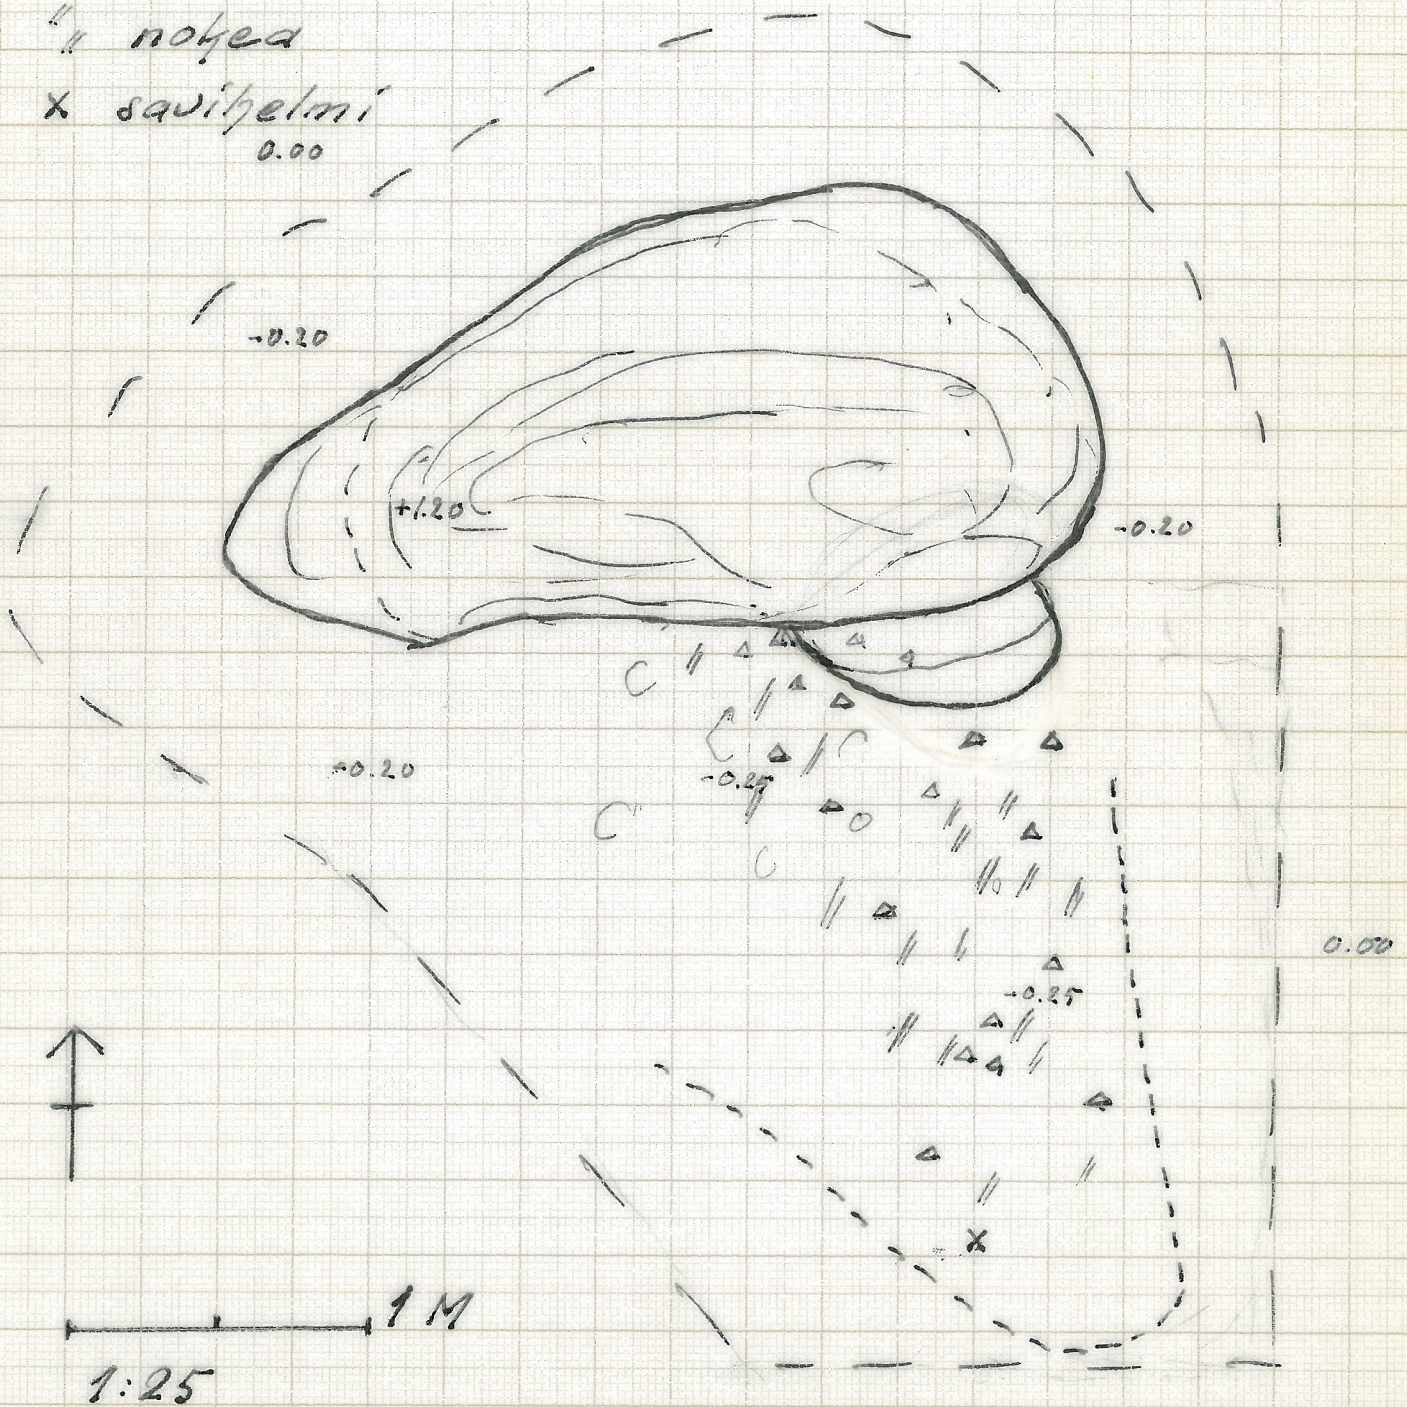 〃 nokea
x savihelmi
0.00
-0.20
+1.20
-0.20
-0.20
-0.25
0.00
-0.25
1 M
1:25